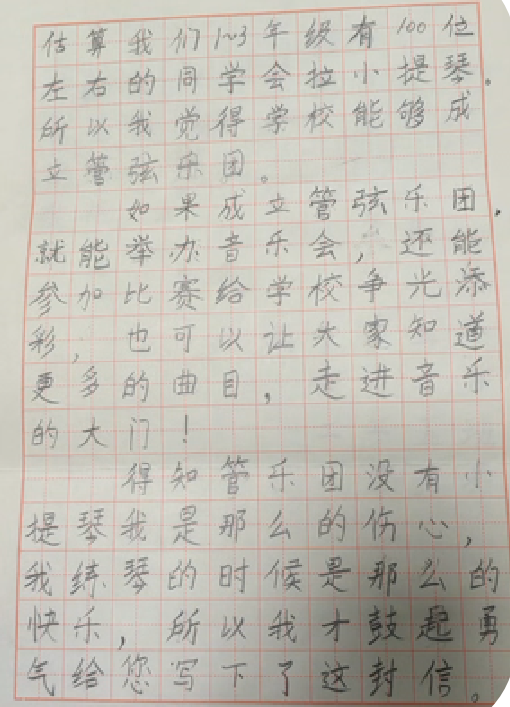 估算我们1~3年级有100位
左右的同学会拉小提琴。
所以我觉得学校能够成
立管弦乐团。
如果成立管弦乐团，
就能举办音乐会，还能
参加比赛给学校争光添
彩，也可以让大家知道
更多的曲目，走进音乐
的大门！
得知管乐团没有小
提琴我是那么的伤心，
我练琴的时候是那么的
快乐，所以我才鼓起勇
气给您写下了这封信。